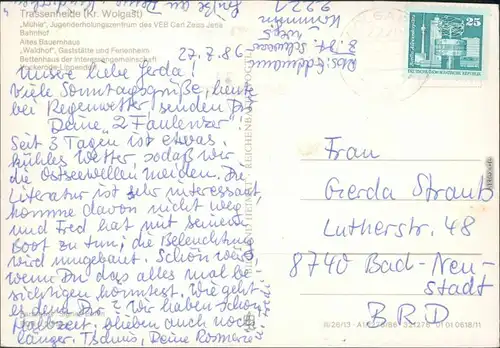 Trassenheide (Kr. Wolgast)
"Mühle", Jugenderholungszentrum des VEB Carl Zeiss Jena
Bahnhof
Altes Bauernhaus
"Waldhof", Gaststätte und Ferienheim
Bettenhaus der Interessengemeinschaft
27.7.86
Unsere liebe Gerda!
Viele Sonntagsgrüße, heute
bei Regenwetter, senden Dir
Deine „2 Faulenzer".
Seit 3 Tagen ist etwas
kühles Wetter, sodaß wir
die Ostseewellen meiden. Die
Literatur ist sehr interessant,
komme davon nicht weg
und Fred hat mit seinem
Boot zu tun, die Beleuchtung
wird umgebaut. Schön wär's,
wenn Du das alles mal be-
sichtigen könntest. Wie geht
es denn Dir? Wir haben schon
Halbzeit, blieben auch noch
länger. Tschüß, Deine Rosmarie
25
DEUTSCHE DEMOKRATISCHE REPUBLIK
Frau
Gerda Straub
Lutherstr. 48
8740 Bad-Neu-
stadt
BRD
III/26/13 01 01 0618/11